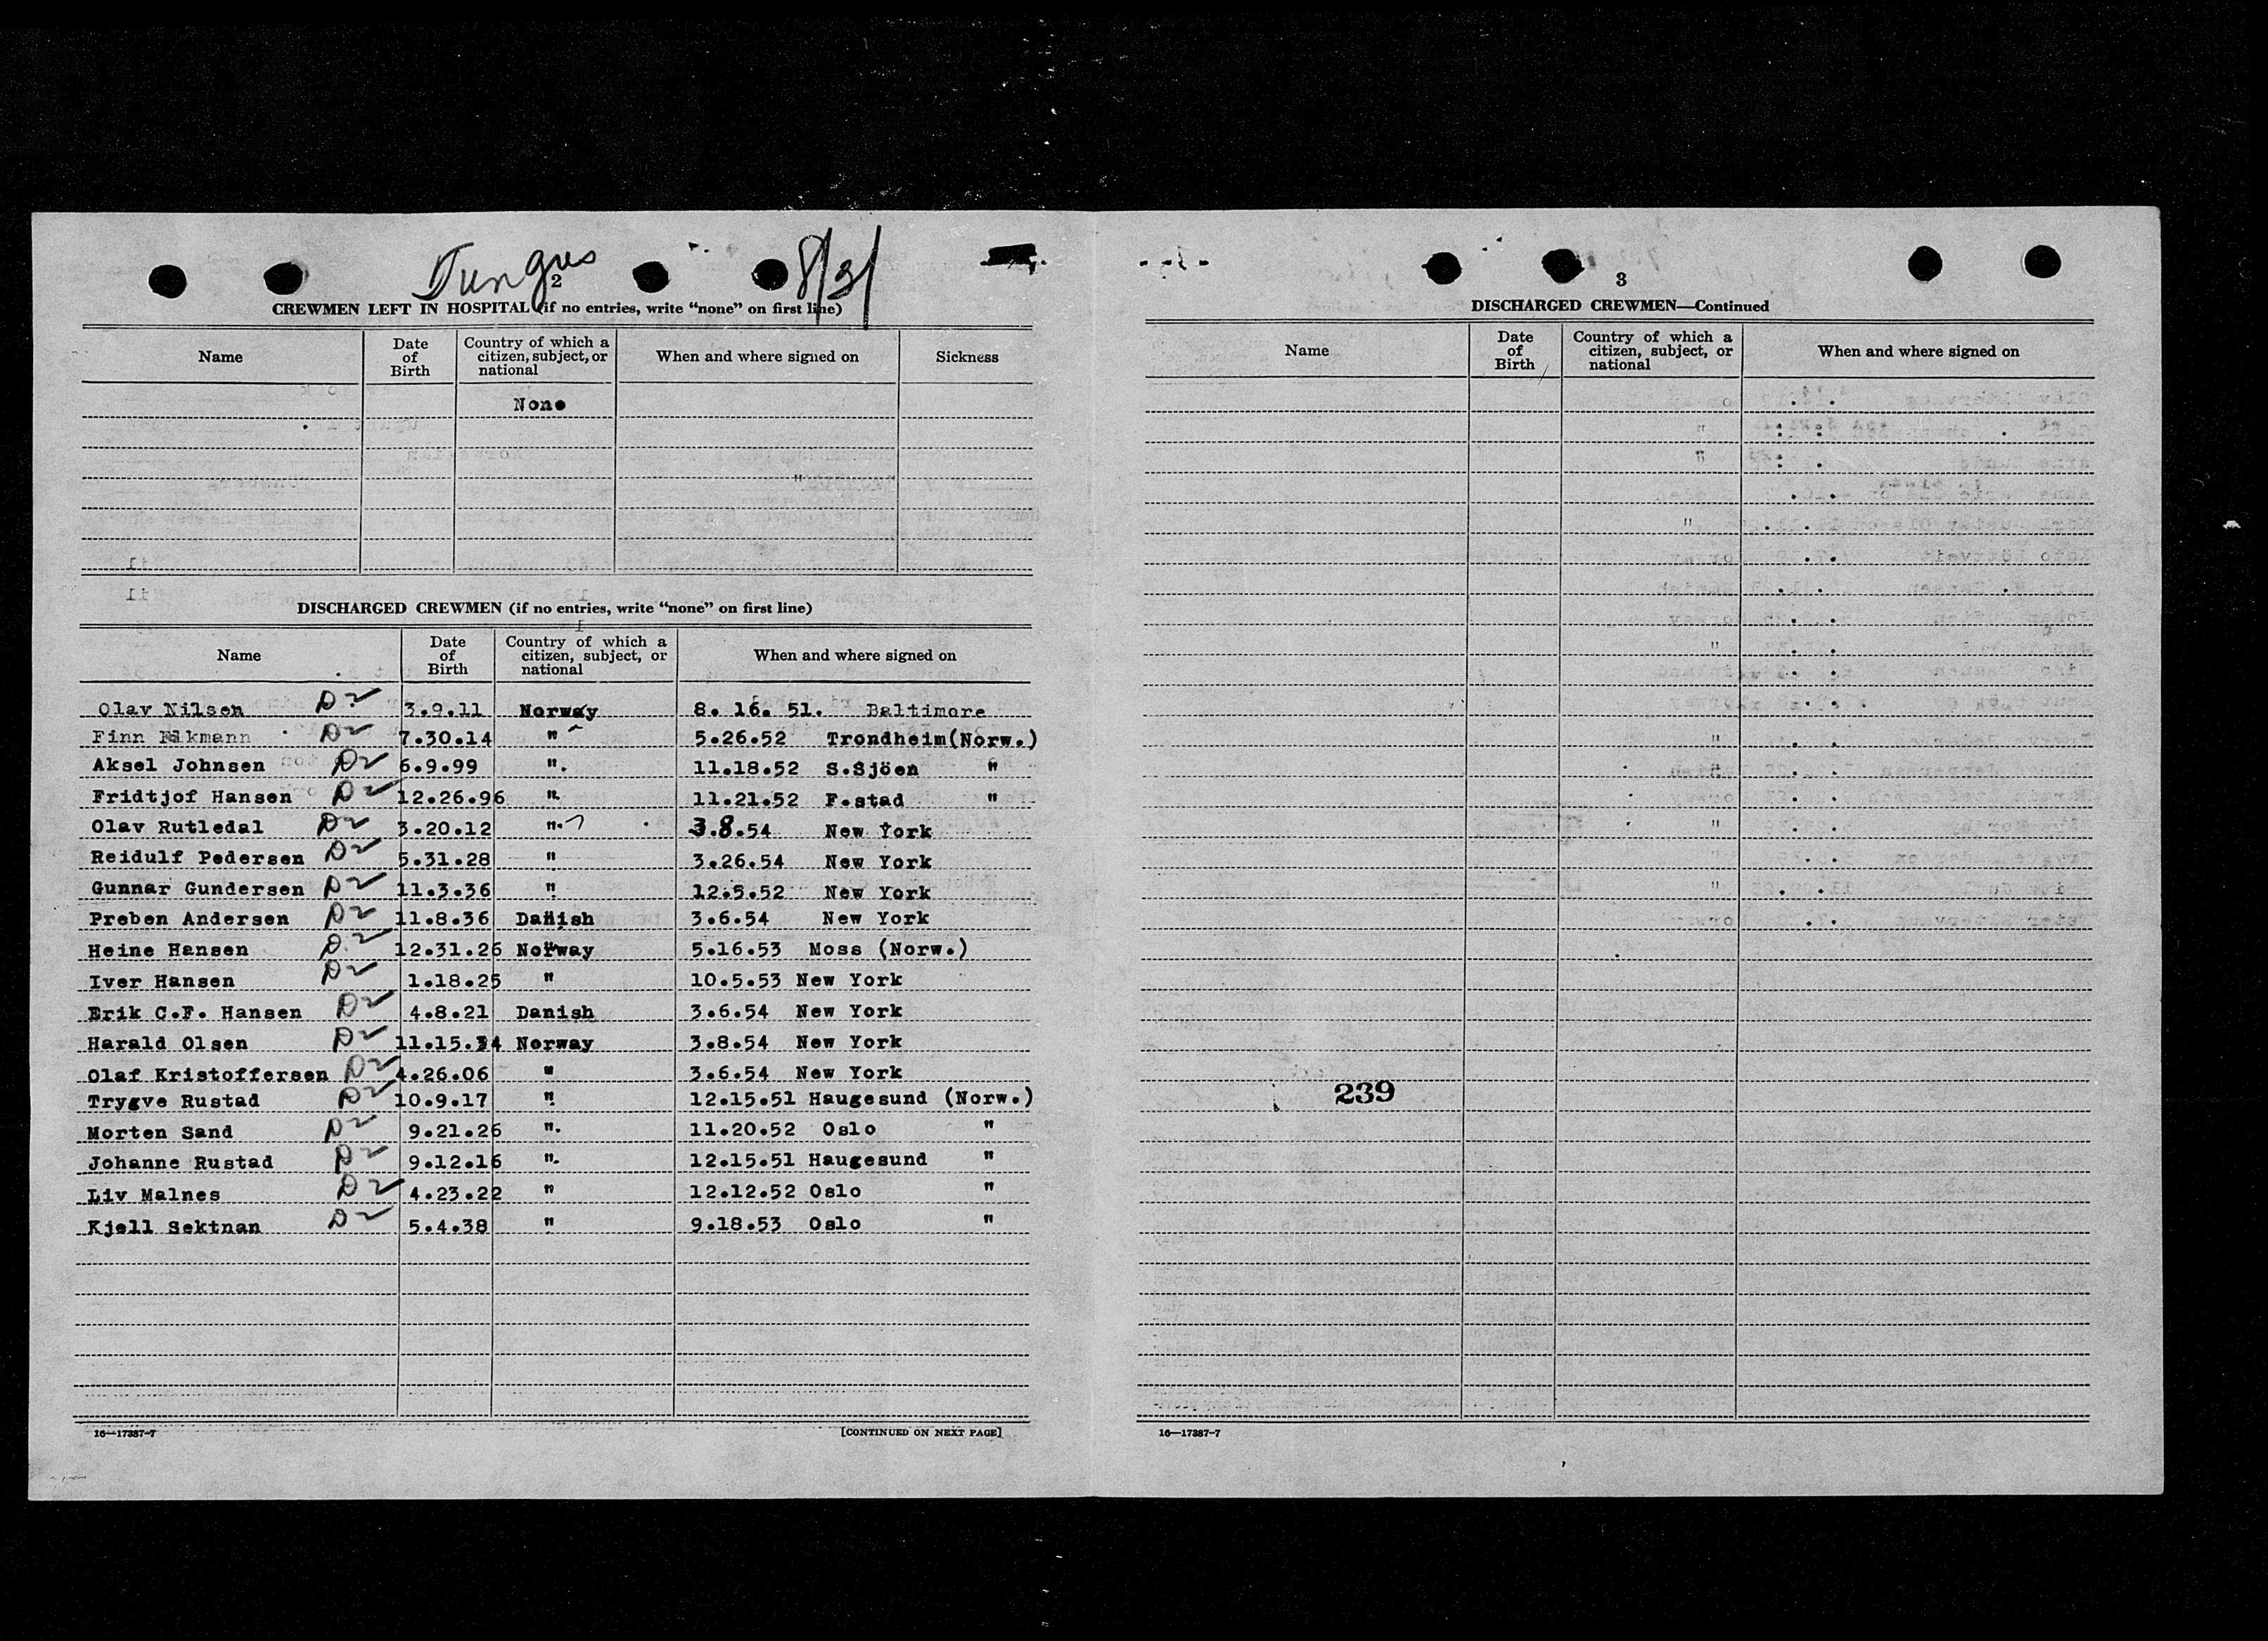 Tungus 8/31
2
CREWMEN LEFT IN HOSPITAL (if no entries, write "none" on first line)
Name Date of Birth Country of which a citizen, subject, or national When and where signed on Sickness
None
DISCHARGED CREWMEN (if no entries, write "none" on first line)
Name Date of Birth Country of which a citizen, subject, or national When and where signed on
Olav Nilsen D2 3.9.11 Norway 8. 16. 51. Baltimore
Finn D2 7.30.14 " 5.26.52 Trondheim(Norw.)
Aksel Johnsen D2 6.9.99 ". 11.18.52 S.Sjöen "
Fridtjof Hansen D2 12.26.96 ". 11.21.52 F.stad "
Olav Rutledal D2 3.20.12 ". 3.8.54 New York
Reidulf Pedersen D2 5.31.28 " 3.26.54 New York
Gunnar Gundersen D2 11.3.36 " 12.5.52 New York
Preben Andersen D2 11.8.36 Danish 3.6.54 New York
Heine Hansen D2 12.31.26 Norway 5.16.53 Moss (Norw.)
Iver Hansen D2 1.18.25 " 10.5.53 New York
Erik C.F. Hansen D2 4.8.21 Danish 3.6.54 New York
Harald Olsen D2 11.15.34 Norway 3.8.54 New York
Olaf Kristoffersen D2 4.26.06 " 3.6.54 New York
Trygve Rustad D2 10.9.17 " 12.15.51 Haugesund (Norw.)
Morten Sand D2 9.21.26 ". 11.20.52 Oslo "
Johanne Rustad D2 9.12.16 ". 12.15.51 Haugesund "
Liv Malnes D2 4.23.22 " 12.12.52 Oslo "
Kjell Sektnan D2 5.4.38 " 9.18.53 Oslo "
16—17387-7 [CONTINUED ON NEXT PAGE]
3
DISCHARGED CREWMEN—Continued
Name Date of Birth Country of which a citizen, subject, or national When and where signed on
239
16—17387-7